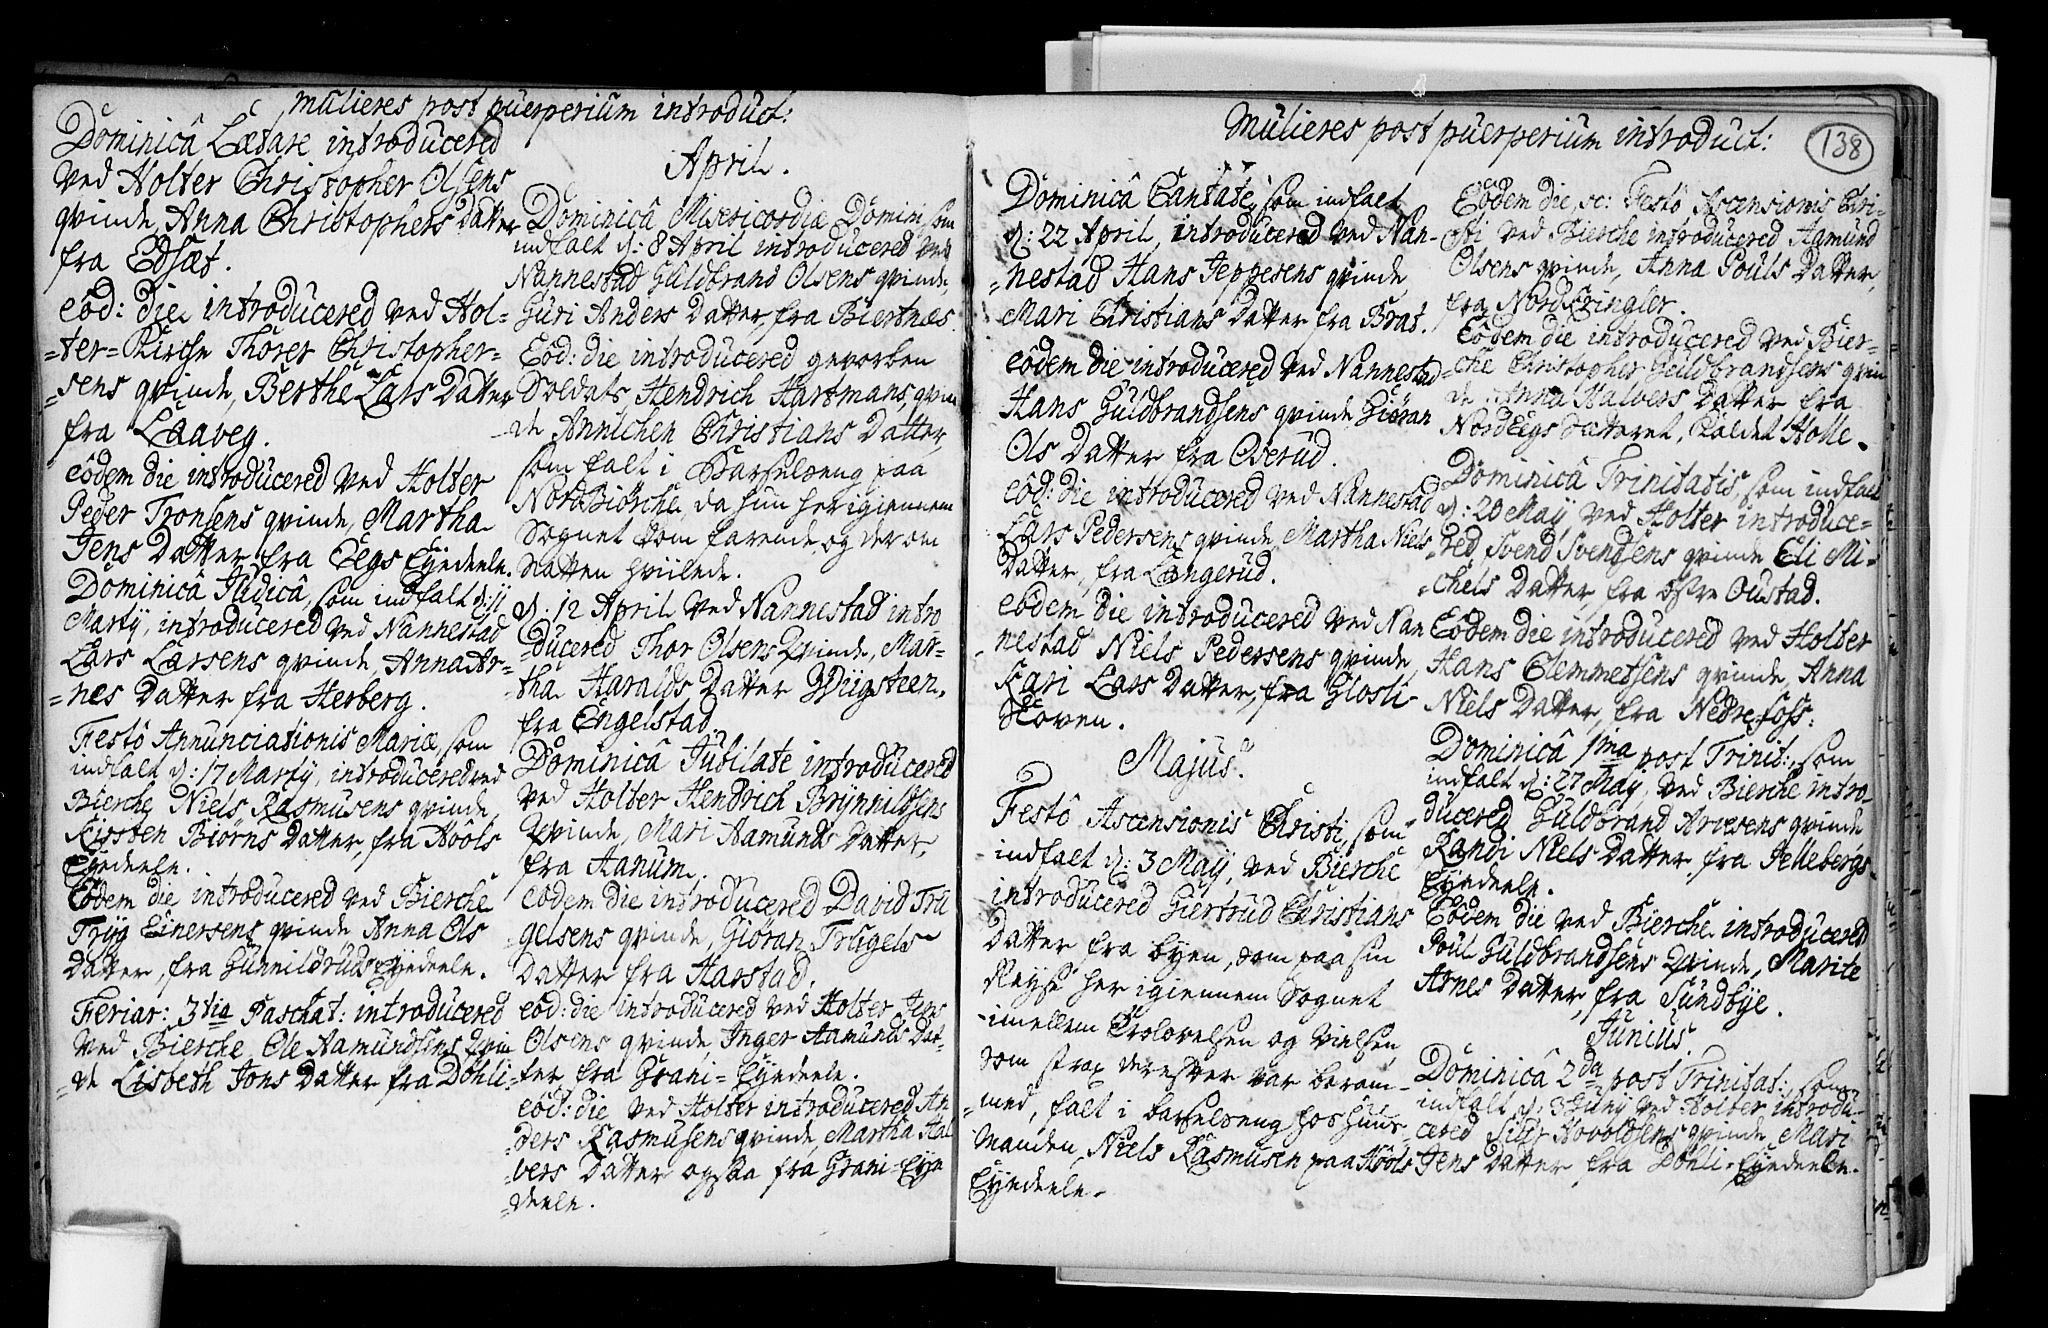 Mulieres post puerperium introduct:
Dominicâ Lætare introducered
ved Holter Christopher Olsens
qvinde, Anna Christophers Datter
fra Edsæt.
eôd: die introducered ved Hol-
=ter=Kirche Thorer Christopher=
=sens qvinde, Berthe Lars Datter
fra Laaveg.
eôdem die introducered ved Holter
Peder Tronsens qvinde, Martha
Jens Datter fra Eegs Eyedeele.
Dominicâ Judicâ, som indfalt d: 11
Martij, introducered ved Nannestad
Lars Larsens qvinde, Anna Ar-
=nes Datter fra Herberg.
Festô Annunciationis Mariæ, som
indfalt d: 17 Martij, introducered ved
Bierche Niels Rasmusens qvinde
Kirsten Biørns Datter, fra Hools
Eyedeele.
Eôdem die introducered ved Bierche
Tryg Einersens qvinde Anna Ols
Datter, fra Gunnildruds Eyedeele.
Feriar: 3tia Paschat: introducered
ved Bierche Ole Aamundsens qvin
=de Lisbeth Jons Datter fra Døhli=
April.
Dominicâ Misericordiæ Domini, som
indfalt d: 8 April introducered ved
Nannestad Guldbrand Olsens qvinde,
Guri Anders Datter, fra Biertnæs.
Eôd: die introducered gevorben
Soldats Hendrich Hartmans, qvin
=de Annichen Christians Datter,
som falt i Barselseng paa
Nord Biørche, da hun her igiennem
Sognet kom farende og der om
Natten hvilede.
d: 12 April ved Nannestad intro
=ducered Thor Olsens Qvinde, Mar-
=tha Haralds Datter Wiigsteen,
fra Engelstad.
Dominicâ Jubilate introducered
ved Holter Hendrich Brynnildsens
Qvinde, Mari Aamunds Datter,
fra Aanum.
eodem die introducered David Tru
=gelsens qvinde, Giøran Trugels
Datter fra Harstad.
eôd: die introducered ved Holter Jens
Olsens qvinde Inger Aamunds Dat=
=ter fra Grani=Eyedeele.
eôd: die ved Holter introducered An
=ders Rasmusens qvinde, Martha Hal
=vers Datter ogsaa fra Grani=Eye
=deele.
Mulieres post puerperium introduct:
138
Dominicâ Cantate, som indfalt
d: 22 April, introducered ved Nan-
=nestad Hans Jeppesens qvinde
Mari Christians Datter fra Brat.
eôdem die introducered ved Nannestad
Hans Guldbrandsens qvinde Giøran
Ols Datter fra Oserud.
eôd: die introducered ved Nannestad
Lars Pedersens qvinde, Martha Niels
Datter, fra Langerud.
eôdem die introducered ved Nan
=nestad Niels Pedersens qvinde,
Kari Lars Datter, fra Glosli-
Skoven.
Majus.
Festô Ascensionis Christi, som
indfalt d: 3 Maij, ved Bierche
introducered Giertrud Christians
Datter fra byen, som paa sin
Reyse her igiennem Sognet
imellem Trolovelsen og Vielsen,
som strax derefter var beram-
=med, falt i barselseng hos hus-
manden, Niels Rasmusen paa Hools
Eyedeele.
Eôdem die, sc: Festô Ascensionis Chri-
=sti ved Bierche introducered Aamund
Olsens qvinde, Anna Pouls Datter,
fra Nord Kringler.
Eôdem die introducered ved Bier=
=che Christopher Guldbrandsens qvin
de Anna Halvers Datter fra
Nord Eegs Sætteret, kaldet Holte.
Dominicâ Trinitatis, som indfalt
d: 20 Maij, ved Holter introduce=
=red Svend Svendsens qvinde Eli Mi-
=chels Datter, fra østre Oustad.
Eôdem die introducered ved Holter
Hans Clemmetsens qvinde, Anna
Niels Datter, fra Nedre foss:
Dominicâ 1ma post Trinit:, som
indfalt d: 27 Maij, ved Bierche intro-
ducered Guldbrand Arnesens qvinde
Randi Niels Datter fra Jellebergs-
Eyedeele.
Eôdem die ved Bierche introducered
Poul Guldbrandsens Qvinde, Marite
Arnes Datter, fra Sundbye.
Junius.
Dominicâ 2da post Trinitat:, som
indfalt d: 3 Junij ved Holter introdu-
=cered Siur Hovoldsens qvinde Mari
Jens Datter fra Døhli=Eyedeele.